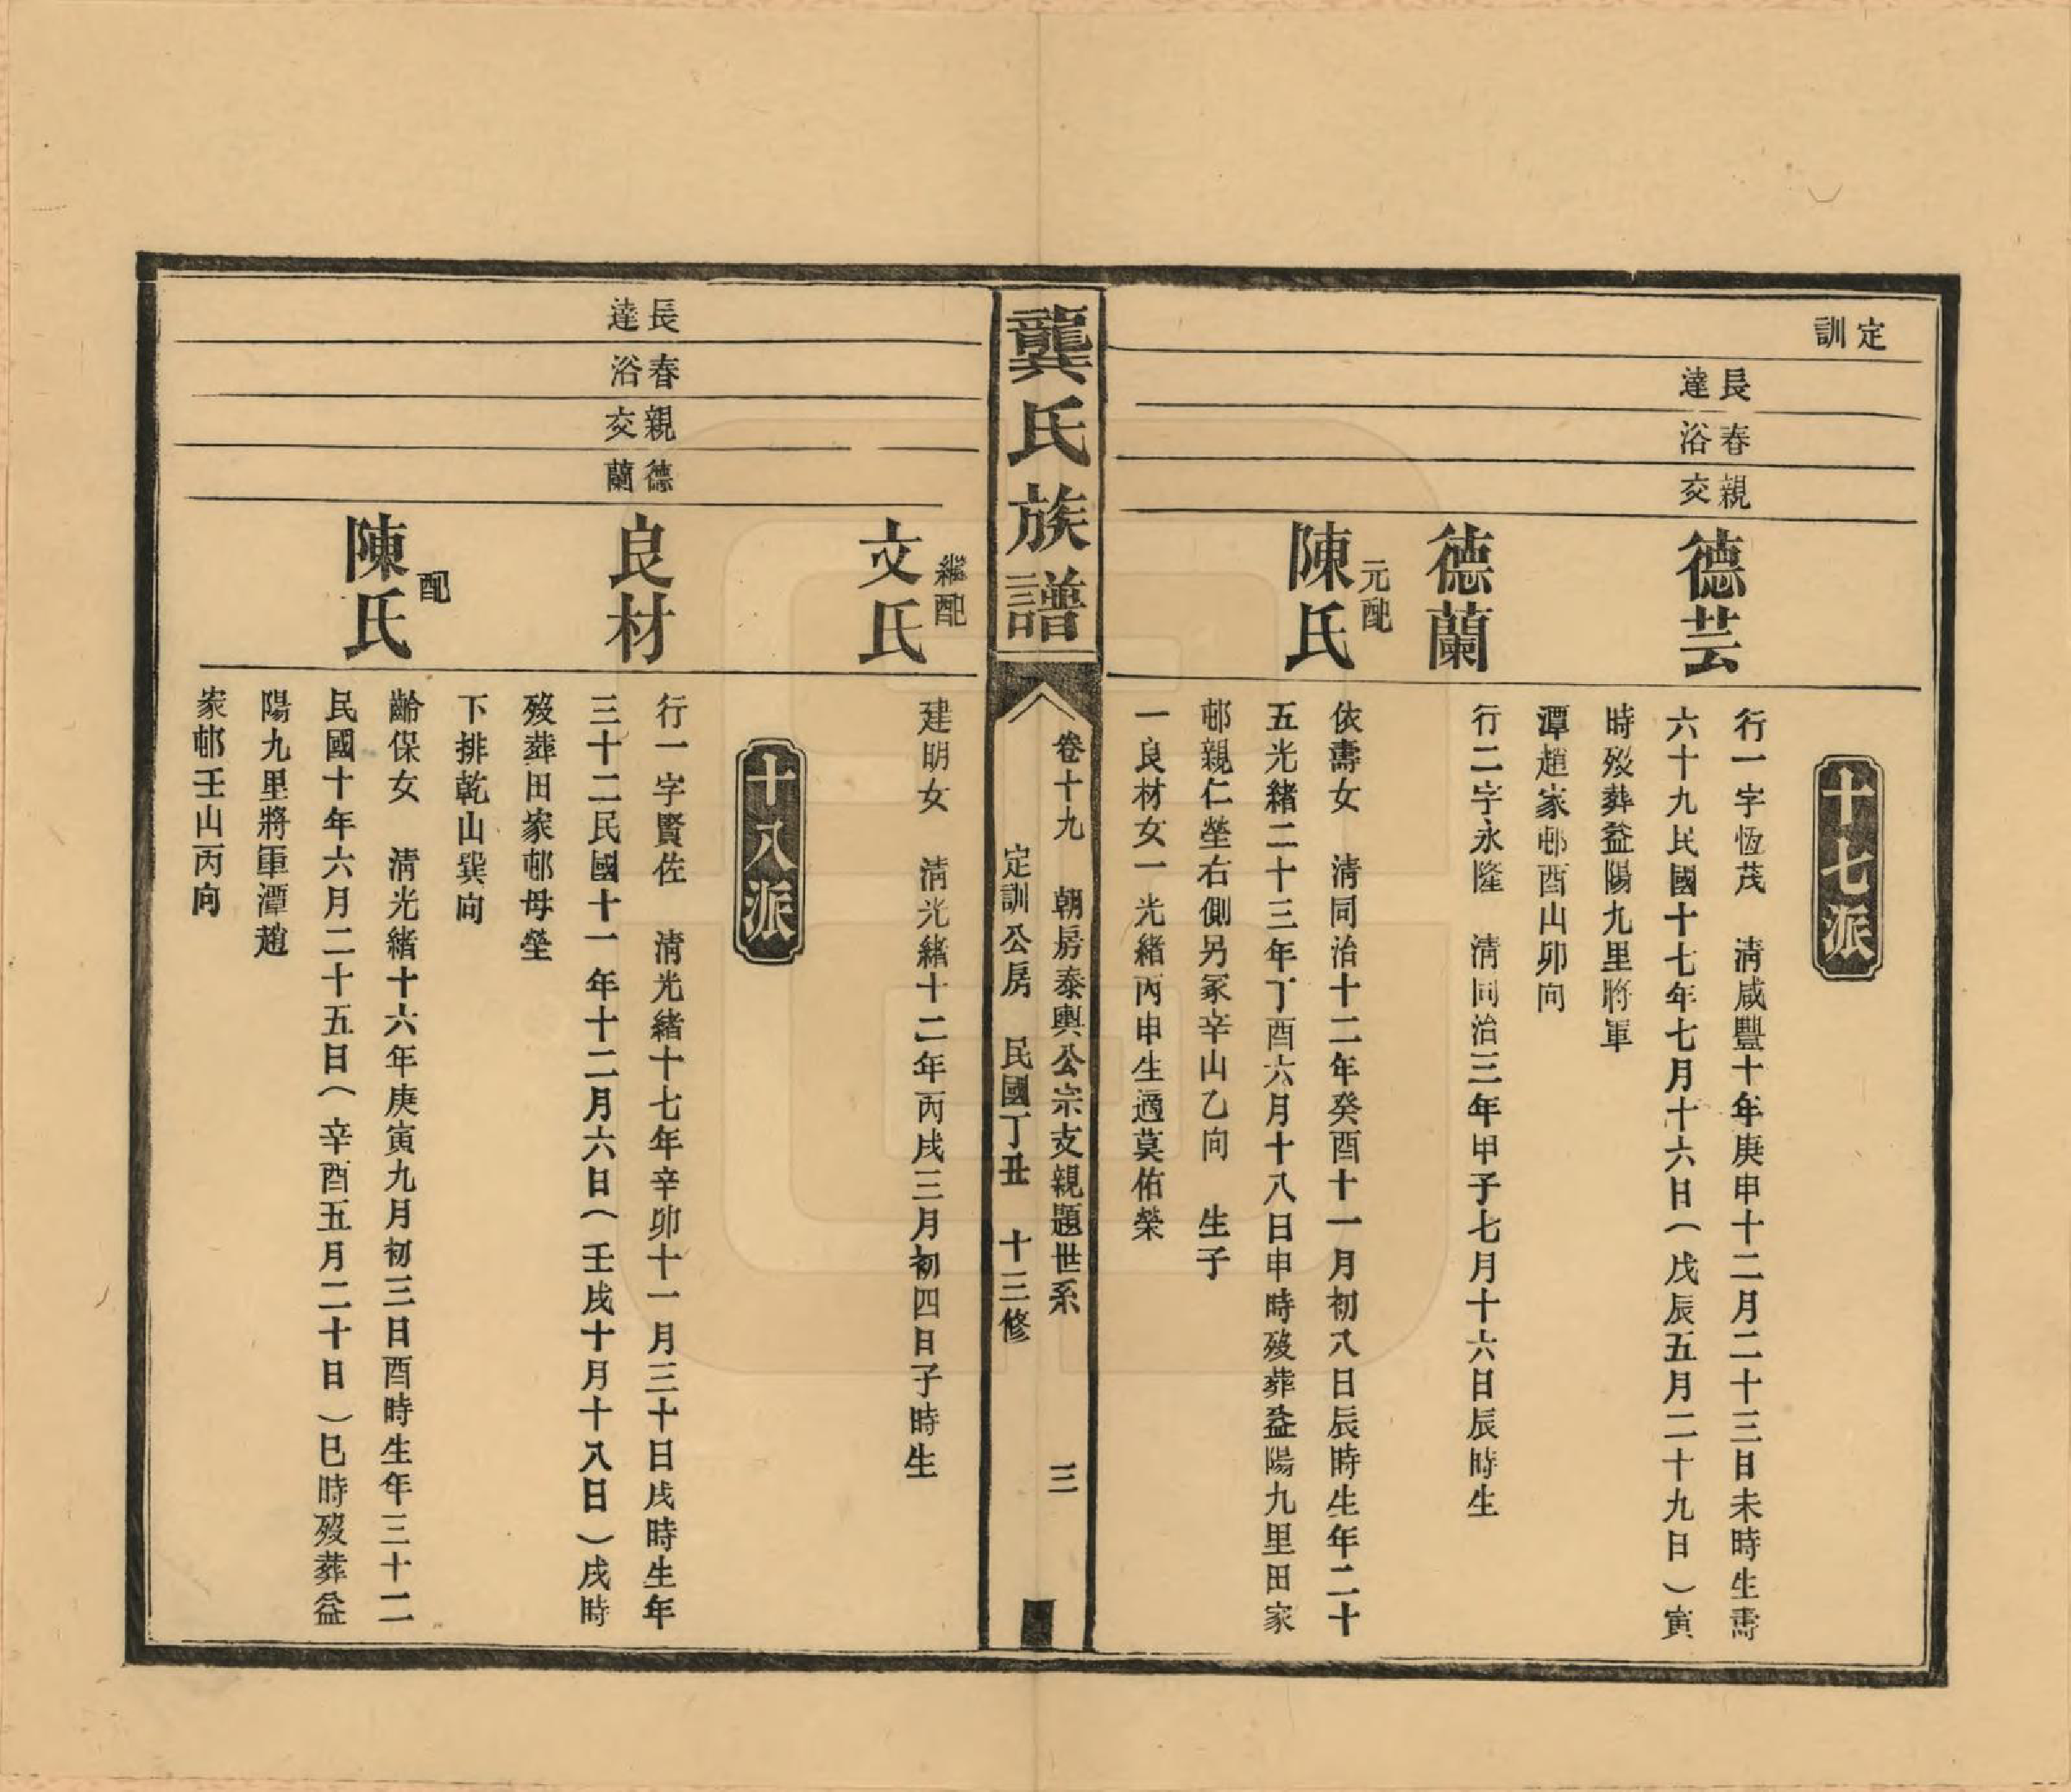 定訓
十七派
長達
春浴
親交
德芸
行一字恆茂　清咸豐十年庚申十二月二十三日未時生壽
六十九民國十七年七月十六日（戊辰五月二十九日）寅
時歿葬益陽九里將軍
潭趙家邨酉山卯向
德蘭
行二字永隆　清同治三年甲子七月十六日辰時生
元配
陳氏
依壽女　清同治十二年癸酉十一月初八日辰時生年二十
五光緒二十三年丁酉六月十八日申時歿葬益陽九里田家
邨親仁塋右側另冢辛山乙向　生子
一良材女一光緒丙申生適莫佑榮
龔氏族譜
卷十九　朝房泰輿公宗支親題世系　三
定訓公房　民國丁丑　十三修
繼配
文氏
建明女　清光緒十二年丙戌三月初四日子時生
十八派
長達
春浴
親交
德蘭
良材
行一字賢佐　清光緒十七年辛卯十一月三十日戌時生年
三十二民國十一年十二月六日（壬戌十月十八日）戌時
歿葬田家邨母塋
下排乾山巽向
配
陳氏
齡保女　清光緒十六年庚寅九月初三日酉時生年三十二
民國十年六月二十五日（辛酉五月二十日）巳時歿葬益
陽九里將軍潭趙
家邨壬山丙向